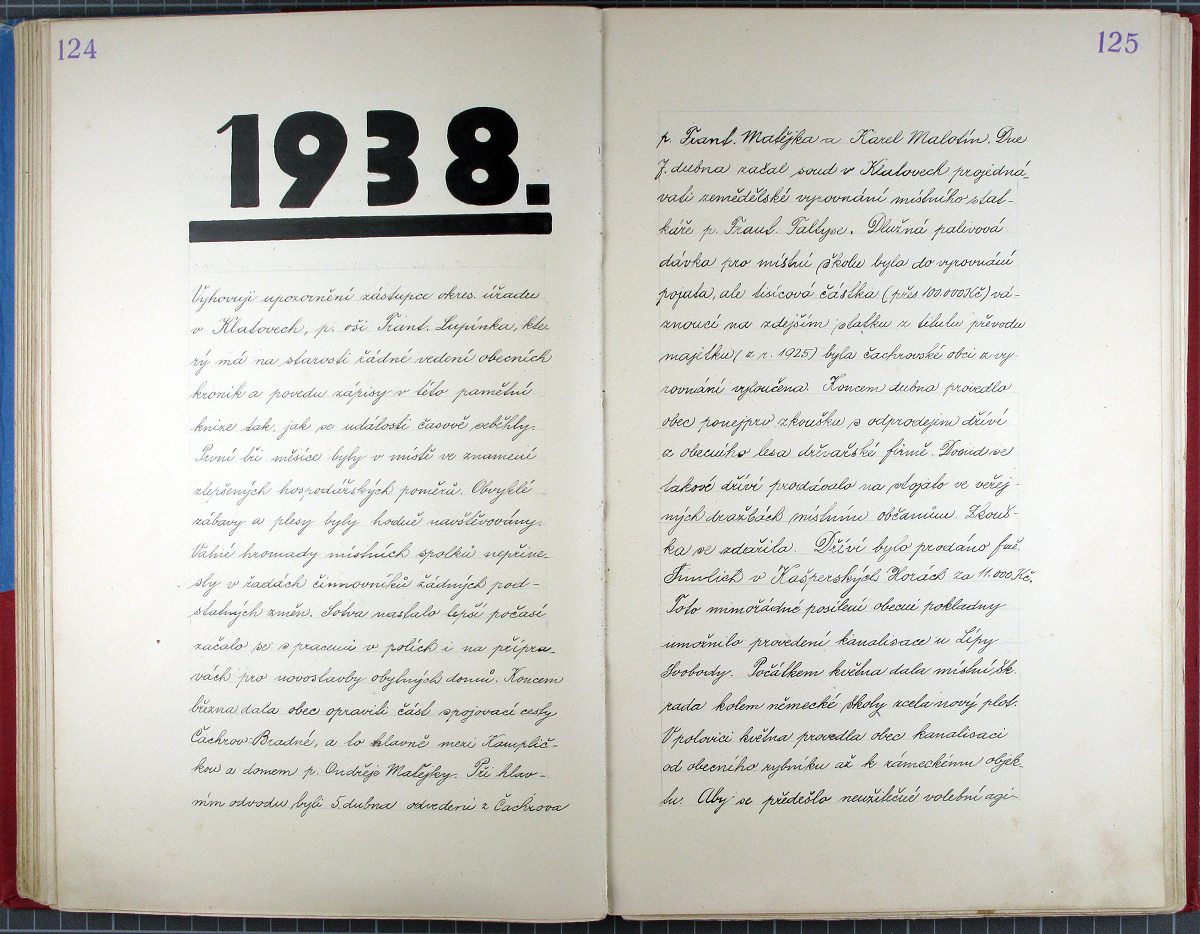 124
1938.
Vyhovuji upozornění zástupce okres. úřadu
v Klatovech, p. ofi Frant. Lupínka, kte-
rý má na starosti řádné vedení obecních
kronik a povedu zápisy v této pamětní
knize tak, jak se události časově seběhly.
První tři měsíce byly v místě ve znamení
zlepšených hospodářských poměrů. Obvyklé
zábavy a plesy byly hodně navštěvovány.
Valné hromady místních spolků nepřine-
sly v řadách činnovníků žádných pod-
statných změn. Sotva nastalo lepší počasí
začalo se s pracemi v polích i na přípra-
vách pro novostavby obytných domů. Koncem
března dala obec opraviti část spojovací cesty
Čachrov-Bradné, a to hlavně mezi Kamplič-
kou a domem p. Ondřeje Matějky. Při hlav-
ním odvodu byli 5. dubna odvedeni z Čachrova
125
p. Frant. Matějka a Karel Malotín. Dne
7. dubna začal soud v Klatovech projedná-
vati zemědělské vyrovnání místního stat-
káře p. Frant. Faltyse. Dlužná palivová
dávka pro místní školu byla do vyrovnání
pojata, ale tisícová částka (přes 100.000 Kč) vá-
znoucí na zdejším statku z titulu převodu
majetku (z r. 1925) byla čachrovské obci z vy-
rovnání vyloučena. Koncem dubna provedla
obec ponejprv zkoušku s odprodejem dříví
z obecního lesa dřevařské firmě. Dosud se
takové dříví prodávalo na stojato ve veřej-
ných dražbách místním občanům. Zkouš-
ka se zdařila. Dříví bylo prodáno fmě.
v Kašperských Horách za 11.000 Kč.
Toto mimořádné posílení obecní pokladny
umožnilo provedení kanalisace u Lípy
Svobody. Počátkem května dala místní šk.
rada kolem německé školy zcela nový plot.
V polovici května provedla obec kanalisaci
od obecního rybníku až k zámeckému objek-
tu. Aby se předešlo neužitečné volební agi-